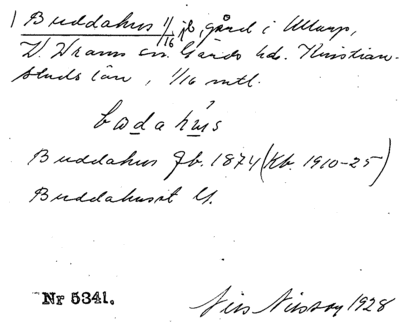 1 Buddahus 1/16 jb, gård i Ullarp,
V. Vrams sn. Gärds hd. Kristian-
stads län, 1/16 mtl.
bádahús
Buddahus Jb. 1874 (Kb. 1910-25)
Buddahuset U.
Nr 5341.
Nils Nilsson 1928